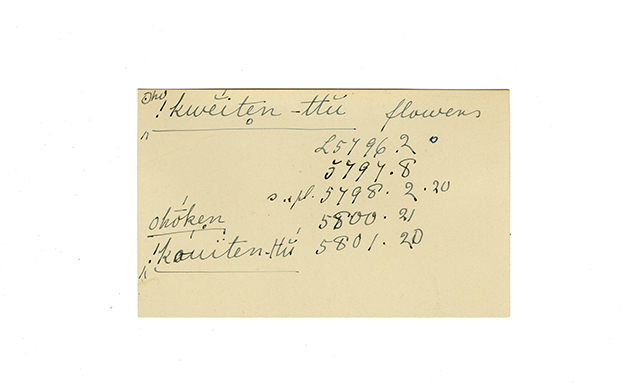 !kwéitẹn-ttŭ flowers
L5796.2
5797.8
s. & pl. 5798.2.20
ohóken 5800.21
!kauiten-ttŭ 5801.20